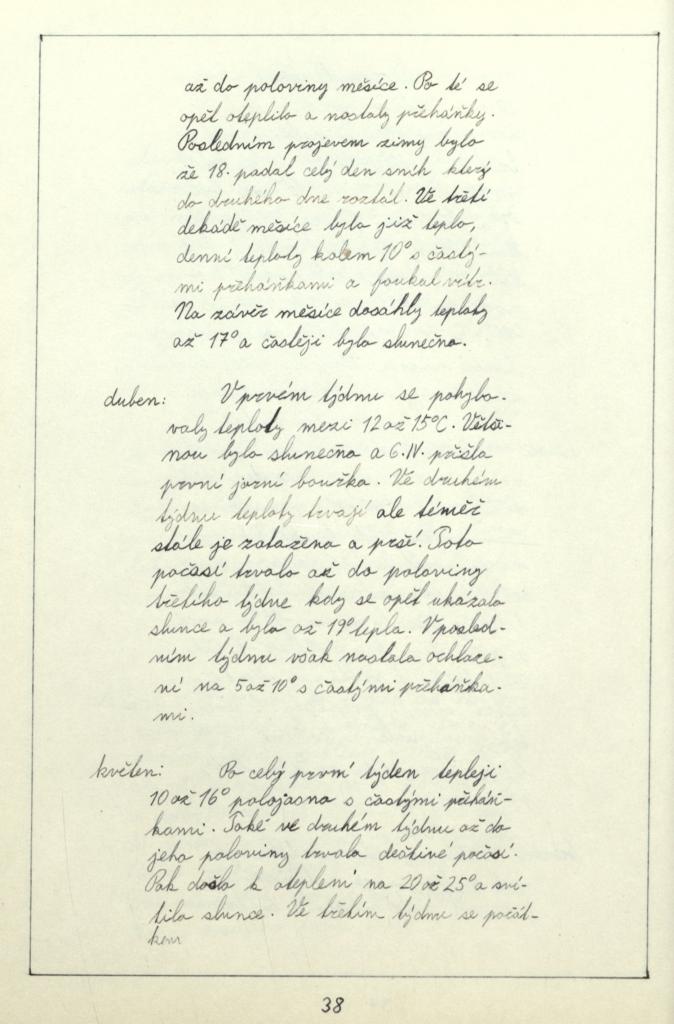 až do poloviny měsíce. Po té se
opět oteplilo a nastaly přeháňky.
Posledním projevem zimy bylo
že 18. padal celý den sníh který
do druhého dne roztál. Ve třetí
dekádě měsíce bylo již teplo,
denní teploty kolem 10° s častý-
mi přeháňkami a foukal vítr.
Na závěr měsíce dosáhly teploty
až 17° a častěji bylo slunečno.
duben: V prvém týdnu se pohybo-
valy teploty mezi 12 až 15°C. Větši-
nou bylo slunečno a 6.IV. přišla
první jarní bouřka. Ve druhém
týdnu teploty trvají ale téměř
stále je zataženo a prší. Toto
počasí trvalo až do poloviny
třetího týdne kdy se opět ukázalo
slunce a bylo až 19° tepla. V posled-
ním týdnu však nastalo ochlaze-
ní na 5 až 10° s častými přeháňka-
mi.
květen: Po celý první týden tepleji
10 až 16° polojasno s častými přeháň-
kami. Také ve druhém týdnu až do
jeho poloviny trvalo deštivé počasí.
Pak došlo k oteplení na 20 až 25° a sví-
tilo slunce. Ve třetím týdnu se počát-
kem
38